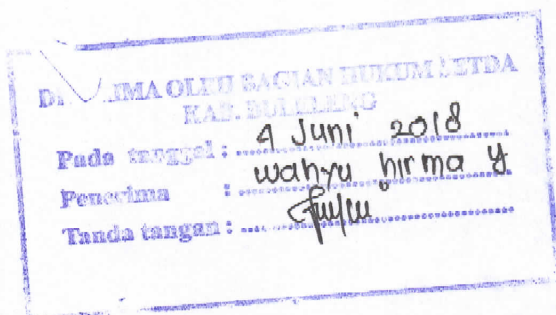 DITERIMA OLEH BAGIAN HUKUM SETDA
KAB. BULELENG
Pada tanggal : 4 Juni 2018
Penerima : Wahyu hirma y
Tanda tangan :